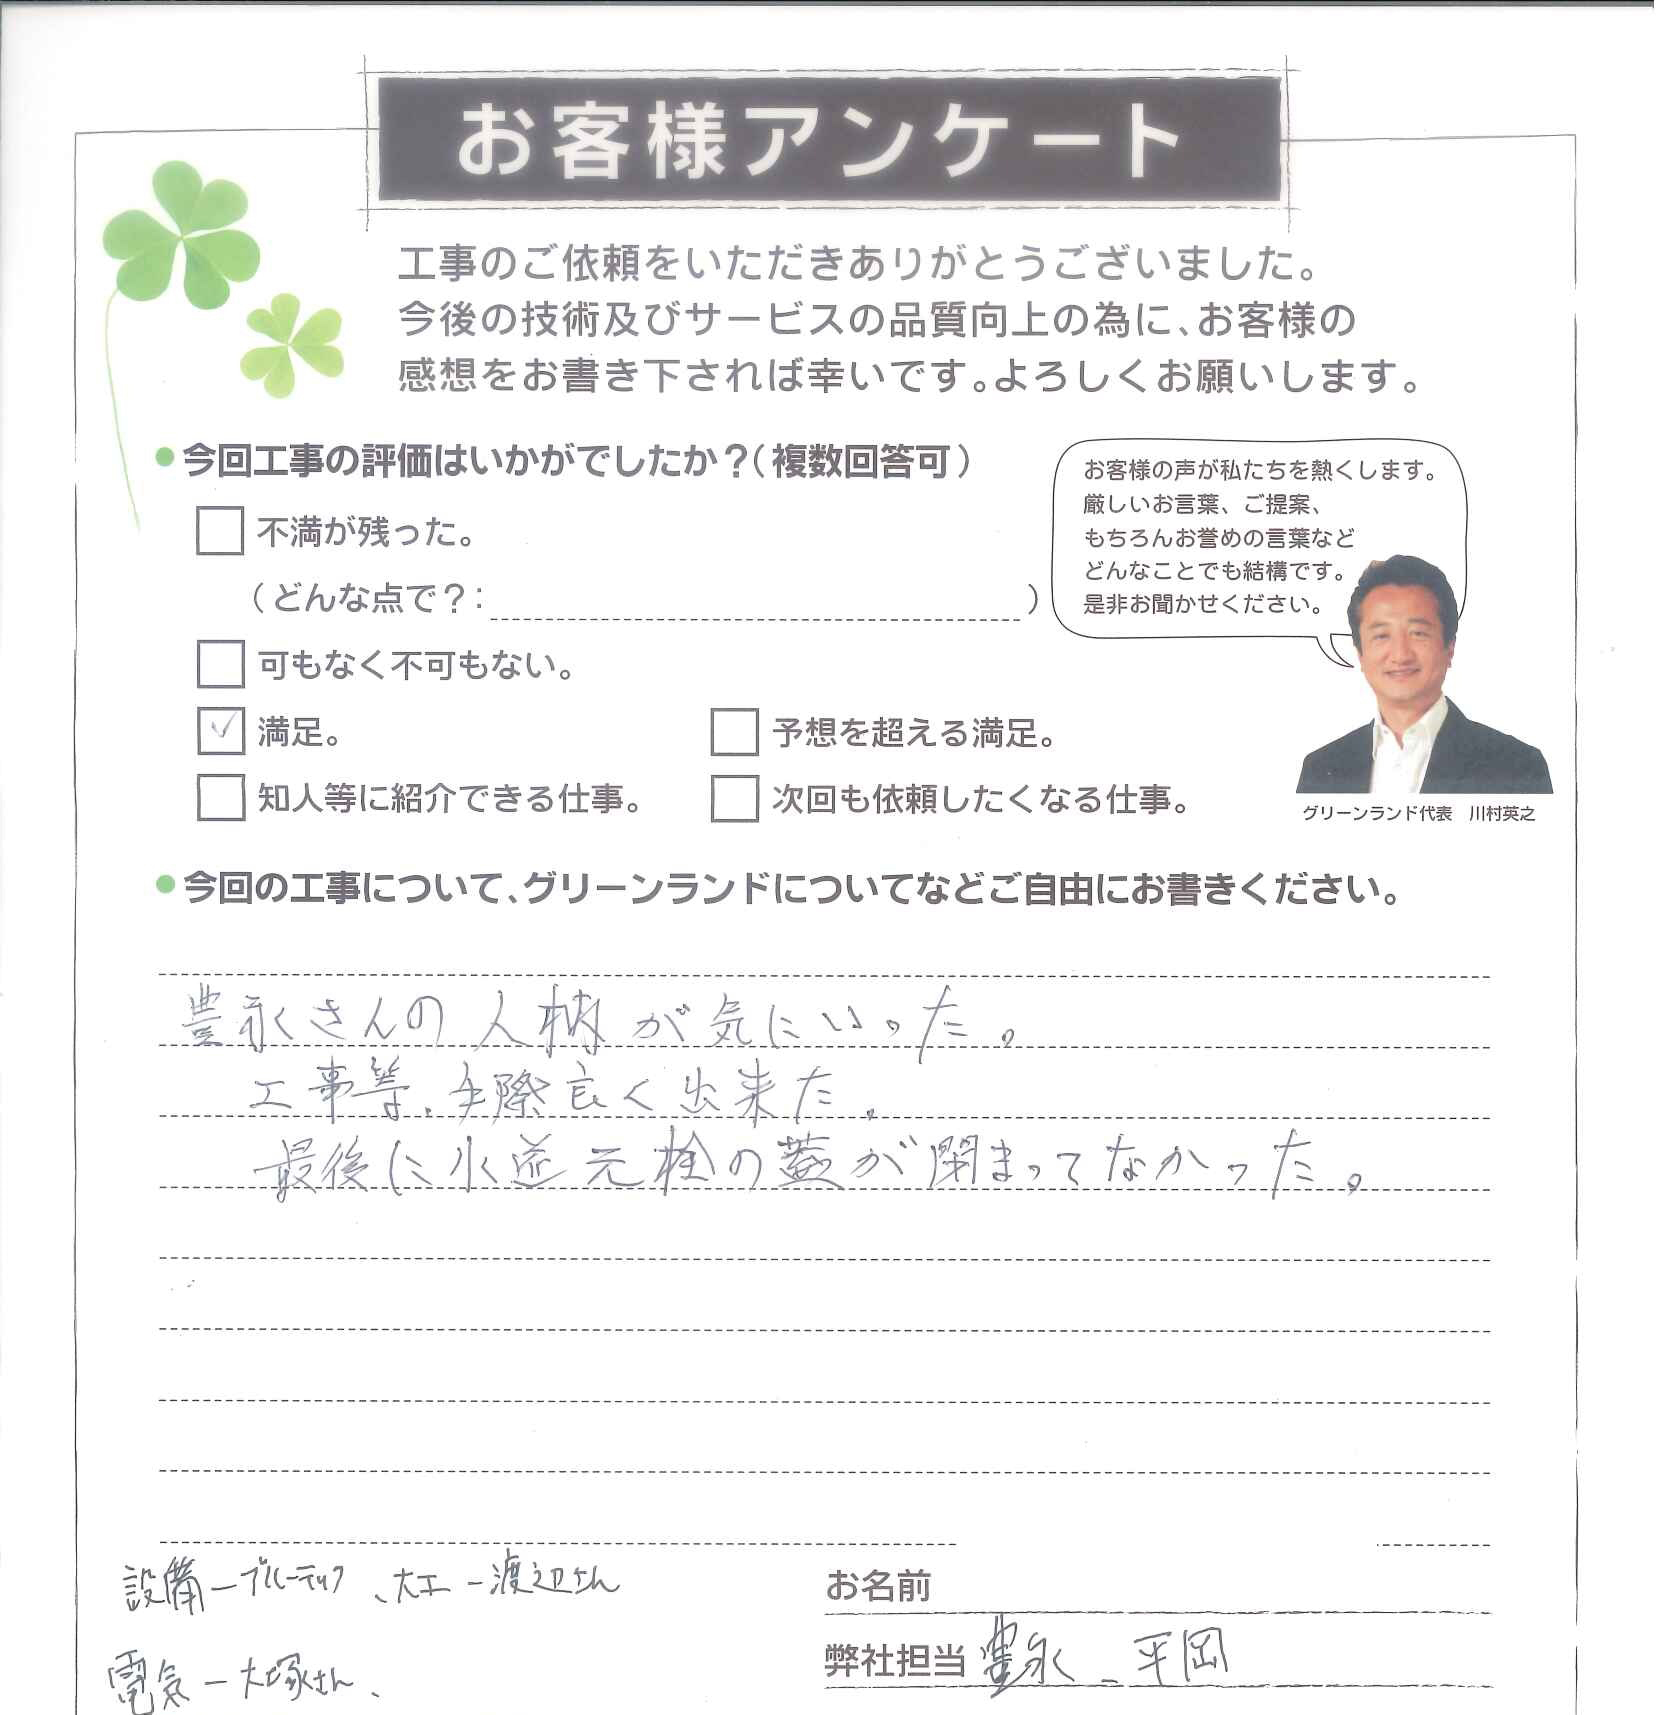 お客様アンケート
工事のご依頼をいただきありがとうございました。
今後の技術及びサービスの品質向上の為に、お客様の
感想をお書き下されば幸いです。よろしくお願いします。
●今回工事の評価はいかがでしたか？（複数回答可）
お客様の声が私たちを熱くします。
厳しいお言葉、ご提案、
もちろんお誉めの言葉など
どんなことでも結構です。
是非お聞かせください。
不満が残った。
（どんな点で？：　）
可もなく不可もない。
満足。
予想を超える満足。
知人等に紹介できる仕事。
次回も依頼したくなる仕事。
グリーンランド代表　川村英之
●今回の工事について、グリーンランドについてなどご自由にお書きください。
豊永さんの人柄が気にいった。
工事等、手際良く出来た。
最後に水道元栓の蓋が閉まってなかった。
設備ーブルーテック、大工ー渡辺さん
お名前
弊社担当 豊永、平岡
電気ー大塚さん、